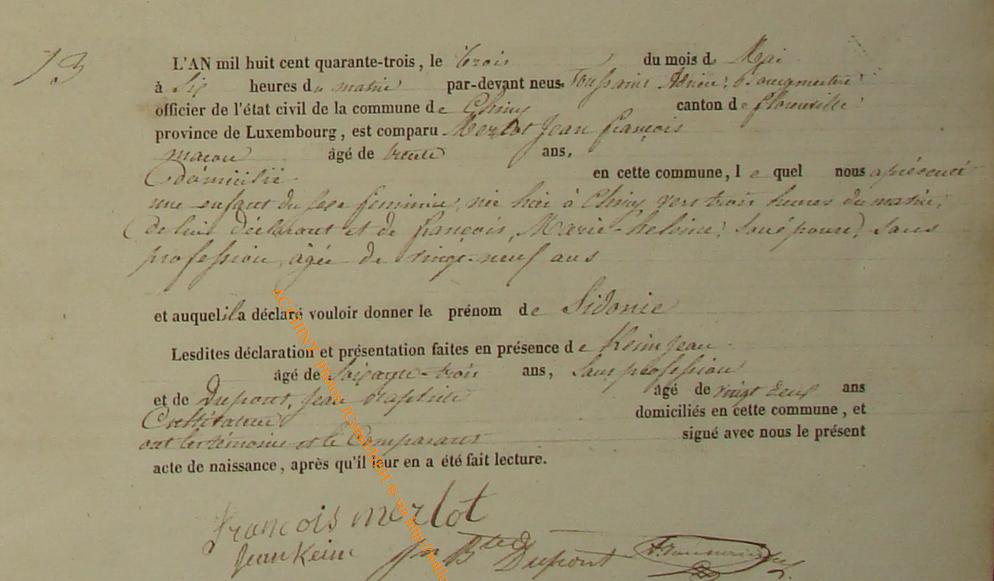 13
L'AN mil huit cent quarante-trois, le trois du mois d Mai
à Six heures du matin par-devant nous Toussaint Bourgmestre
officier de l'état civil de la commune de Chiny canton de florenville
province de Luxembourg, est comparu Merlot Jean françois
macon âgé de trente ans,
domicilié en cette commune, le quel nous a présenté
une enfant du sexe feminin, née hier à Chiny vers trois heures du matin,
de lui déclarant et de françois, Marie-heloine, son épouse, sans
profession, agée de vingt-neuf ans
et auquel il a déclaré vouloir donner le prénom de Sidonie
Lesdites déclaration et présentation faites en présence de Keim Jean
âgé de soixante-trois ans, sans profession
et de Dupont, Jean Baptiste âgé de vingt deux ans
Cultivateur domiciliés en cette commune, et
ont les témoins et le Comparant signé avec nous le présent
acte de naissance, après qu'il leur en a été fait lecture.
françois merlot
Jean Keim Jn Bte Dupont